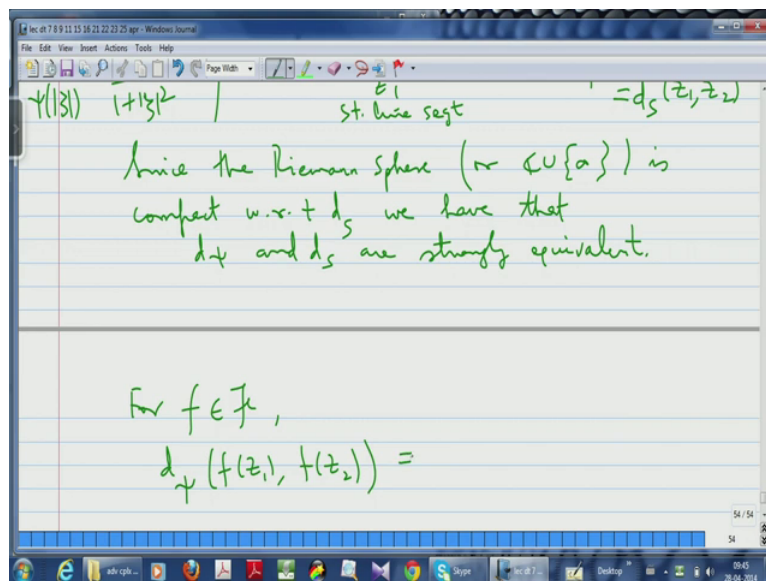 lec dt 7 8 9 11 15 16 21 22 23 25 apr - Windows Journal
File Edit View Insert Actions Tools Help
Page Width
ψ(|z|) 1+|z|² z₁ = d_s(z₁, z₂)
st. line segt
Since the Riemann Sphere (or ℂ∪{∞}) is
compact w.r.t d_s we have that
d_ψ and d_s are strongly equivalent.
For f ∈ ℱ,
d_ψ (f(z₁), f(z₂)) =
54 / 54
54
adv cpls ...
Skype
lec dt 7 ...
Desktop
09:45
28-04-2014